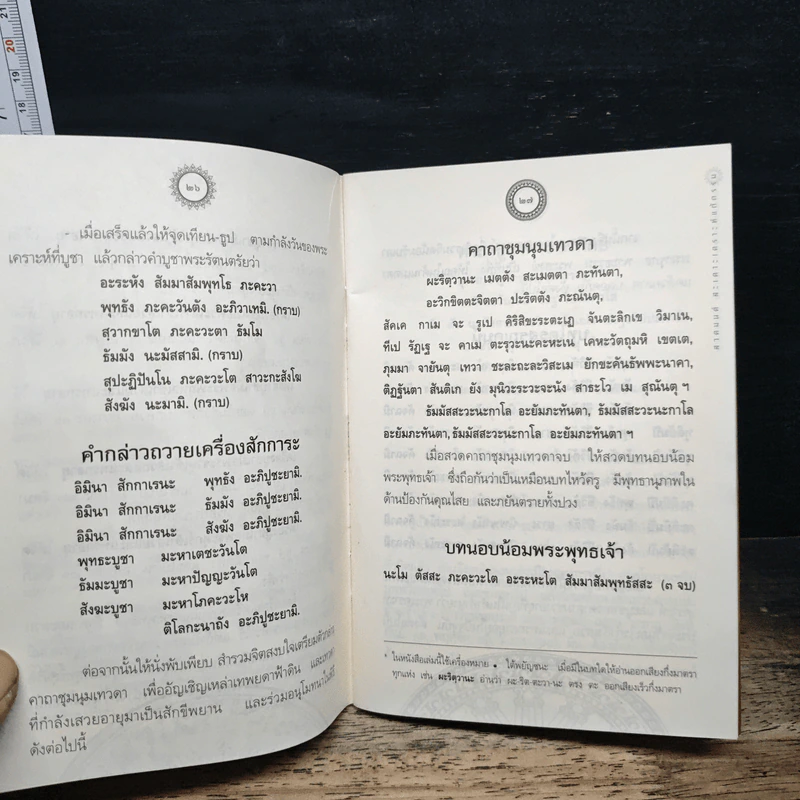 ๒๖
- เมื่อเสร็จแล้วให้จุดเทียน-ธูป ตามกำลังวันของพระ
เคราะห์ที่บูชา แล้วกล่าวคำบูชาพระรัตนตรัยว่า
อะระหัง สัมมาสัมพุทโธ ภะคะวา
พุทธัง ภะคะวันตัง อะภิวาเทมิ. (กราบ)
สฺวากขาโต ภะคะวะตา ธัมโม
ธัมมัง นะมัสสามิ. (กราบ)
สุปะฏิปันโน ภะคะวะโต สาวะกะสังโฆ
สังฆัง นะมามิ. (กราบ)
คำกล่าวถวายเครื่องสักการะ
อิมินา สักกาเรนะ พุทธัง อะภิปูชะยามิ.
อิมินา สักกาเรนะ ธัมมัง อะภิปูชะยามิ.
อิมินา สักกาเรนะ สังฆัง อะภิปูชะยามิ.
พุทธะบูชา มะหาเตชะวันโต
ธัมมะบูชา มะหาปัญญะวันโต
สังฆะบูชา มะหาโภคะวะโห
ติโลกะนาถัง อะภิปูชะยามิ.
ต่อจากนั้นให้นั่งพับเพียบ สำรวมจิตสงบใจเตรียมตัวกล่าว
คาถาชุมนุมเทวดา เพื่ออัญเชิญเหล่าเทพยดาฟ้าดิน และเทวดา
ที่กำลังเสวยอายุมาเป็นสักขีพยาน และร่วมอนุโมทนาในพิธี
ดังต่อไปนี้
๒๗
คาถาชุมนุมเทวดา
ผะริตฺวานะ เมตตัง สะเมตตา ภะทันตา,
อะวิกขิตตะจิตตา ปะริตตัง ภะณันตุ,
สัคเค กาเม จะ รูเป คิริสิขะระตะเฏ จันตะลิกเข วิมาเน,
ทีเป รัฏเฐ จะ คาเม ตะรุวะนะคะหะเน เคหะวัตถุมหิ เขตเต,
ภุมมา จายันตุ เทวา ชะละถะละวิสะเม ยักขะคันธัพพะนาคา,
ติฏฐันตา สันติเก ยัง มุนิวะระวะจะนัง สาธะโว เม สุณันตุ ฯ
ธัมมัสสะวะนะกาโล อะยัมภะทันตา, ธัมมัสสะวะนะกาโล
อะยัมภะทันตา, ธัมมัสสะวะนะกาโล อะยัมภะทันตา ฯ
เมื่อสวดคาถาชุมนุมเทวดาจบ ให้สวดบทนอบน้อม
พระพุทธเจ้า ซึ่งถือกันว่าเป็นเหมือนบทไหว้ครู มีพุทธานุภาพใน
ด้านป้องกันคุณไสย และภยันตรายทั้งปวง
บทนอบน้อมพระพุทธเจ้า
นะโม ตัสสะ ภะคะวะโต อะระหะโต สัมมาสัมพุทธัสสะ (๓ จบ)
* ในหนังสือเล่มนี้ใช้เครื่องหมาย • ใต้พยัญชนะ เมื่อมีในบทใดให้อ่านออกเสียงกึ่งมาตรา
ทุกแห่ง เช่น ผะริตฺวานะ อ่านว่า ผะ-ริต-ตะวา-นะ ตรง ตะ ออกเสียงเร็วกึ่งมาตรา